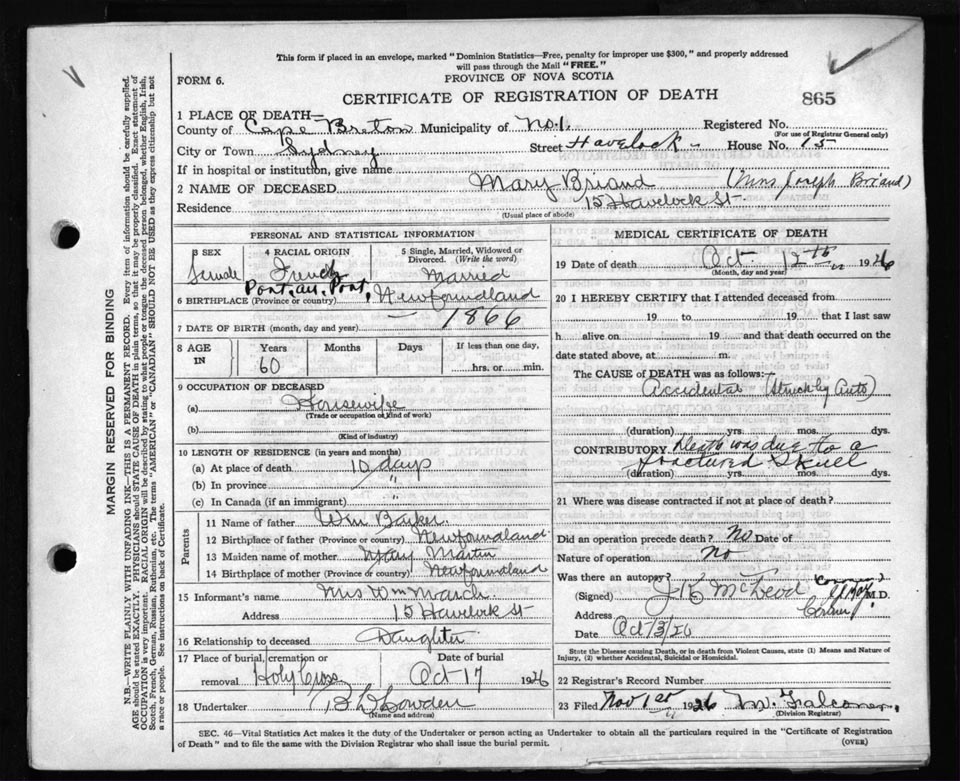 This form if placed in an envelope, marked "Dominion Statistics—Free, penalty for improper use $300," and properly addressed
will pass through the Mail "FREE."
FORM 6.
PROVINCE OF NOVA SCOTIA
CERTIFICATE OF REGISTRATION OF DEATH
865
1 PLACE OF DEATH—
County of Cape Breton Municipality of No. 1. Registered No.
(For use of Registrar General only)
City or Town Sydney Street Havelock House No. 15
If in hospital or institution, give name
2 NAME OF DECEASED Mary Briand (Mrs Joseph Briand)
Residence 15 Havelock St
(Usual place of abode)
PERSONAL AND STATISTICAL INFORMATION
3 SEX 4 RACIAL ORIGIN 5 Single, Married, Widowed or Divorced. (Write the word)
Female French Married
Port. au. Port.
6 BIRTHPLACE (Province or country) Newfoundland
7 DATE OF BIRTH (month, day and year) 1866
8 AGE IN Years Months Days If less than one day,
60 hrs. or min.
9 OCCUPATION OF DECEASED
(a) Housewife
(Trade or occupation or kind of work)
(b)
(Kind of industry)
10 LENGTH OF RESIDENCE (in years and months)
(a) At place of death 10 days
(b) In province "
(c) In Canada (if an immigrant) "
Parents
11 Name of father Wm Barker
12 Birthplace of father (Province or country) Newfoundland
13 Maiden name of mother Mary Martin
14 Birthplace of mother (Province or country) Newfoundland
15 Informant's name Mrs Wm March
Address 15 Havelock St
16 Relationship to deceased Daughter
17 Place of burial, cremation or removal Holy Cross Date of burial Oct 17 1926
18 Undertaker
(Name and address)
MEDICAL CERTIFICATE OF DEATH
19 Date of death Oct 12th 1926
(Month, day and year)
20 I HEREBY CERTIFY that I attended deceased from
19 to 19 that I last saw
h alive on 19 and that death occurred on the
date stated above, at m.
The CAUSE of DEATH was as follows:
Accidental (Struck by Auto)
(duration) yrs. mos. dys.
CONTRIBUTORY Death was due to a
fractured skull
(duration) yrs. mos. dys.
21 Where was disease contracted if not at place of death?
Did an operation precede death? No Date of
Nature of operation No
Was there an autopsy?
(Signed) J K McLeod Coroner M.D.
Address
Date Oct 13/26
State the Disease causing Death, or in death from Violent Causes, state (1) Means and Nature of
Injury, (2) whether Accidental, Suicidal or Homicidal.
22 Registrar's Record Number
23 Filed Nov 1st 1926 M. Falconer,
(Division Registrar)
SEC. 46—Vital Statistics Act makes it the duty of the Undertaker or person acting as Undertaker to obtain all the particulars required in the "Certificate of Registration
of Death" and to file the same with the Division Registrar who shall issue the burial permit.
(OVER)
MARGIN RESERVED FOR BINDING
N.B.—WRITE PLAINLY WITH UNFADING INK—THIS IS A PERMANENT RECORD. Every item of information should be carefully supplied.
AGE should be stated EXACTLY. PHYSICIANS should STATE CAUSE OF DEATH in plain terms, so that it may be properly classified. Exact statement of
OCCUPATION is very important. RACIAL ORIGIN will be described by stating to what people or tongue the deceased person belonged, whether English, Irish,
Scotch, French, German, Russian, Ruthenian, etc. The terms "AMERICAN" or "CANADIAN" SHOULD NOT BE USED as they express citizenship but not
a race or people. See instructions on back of Certificate.